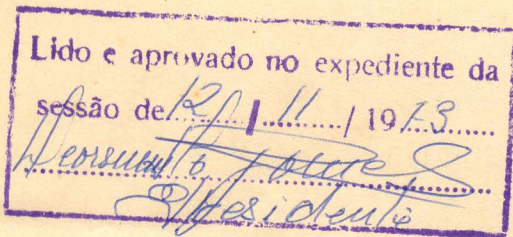 Lido e aprovado no expediente da
sessão de 12 / 11 / 1973
Presidente